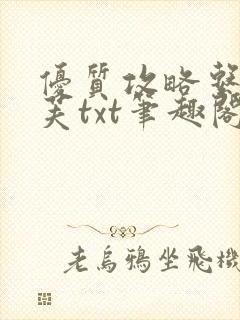 優質攻略整
天txt筆趣閣
老烏鴉坐飛機